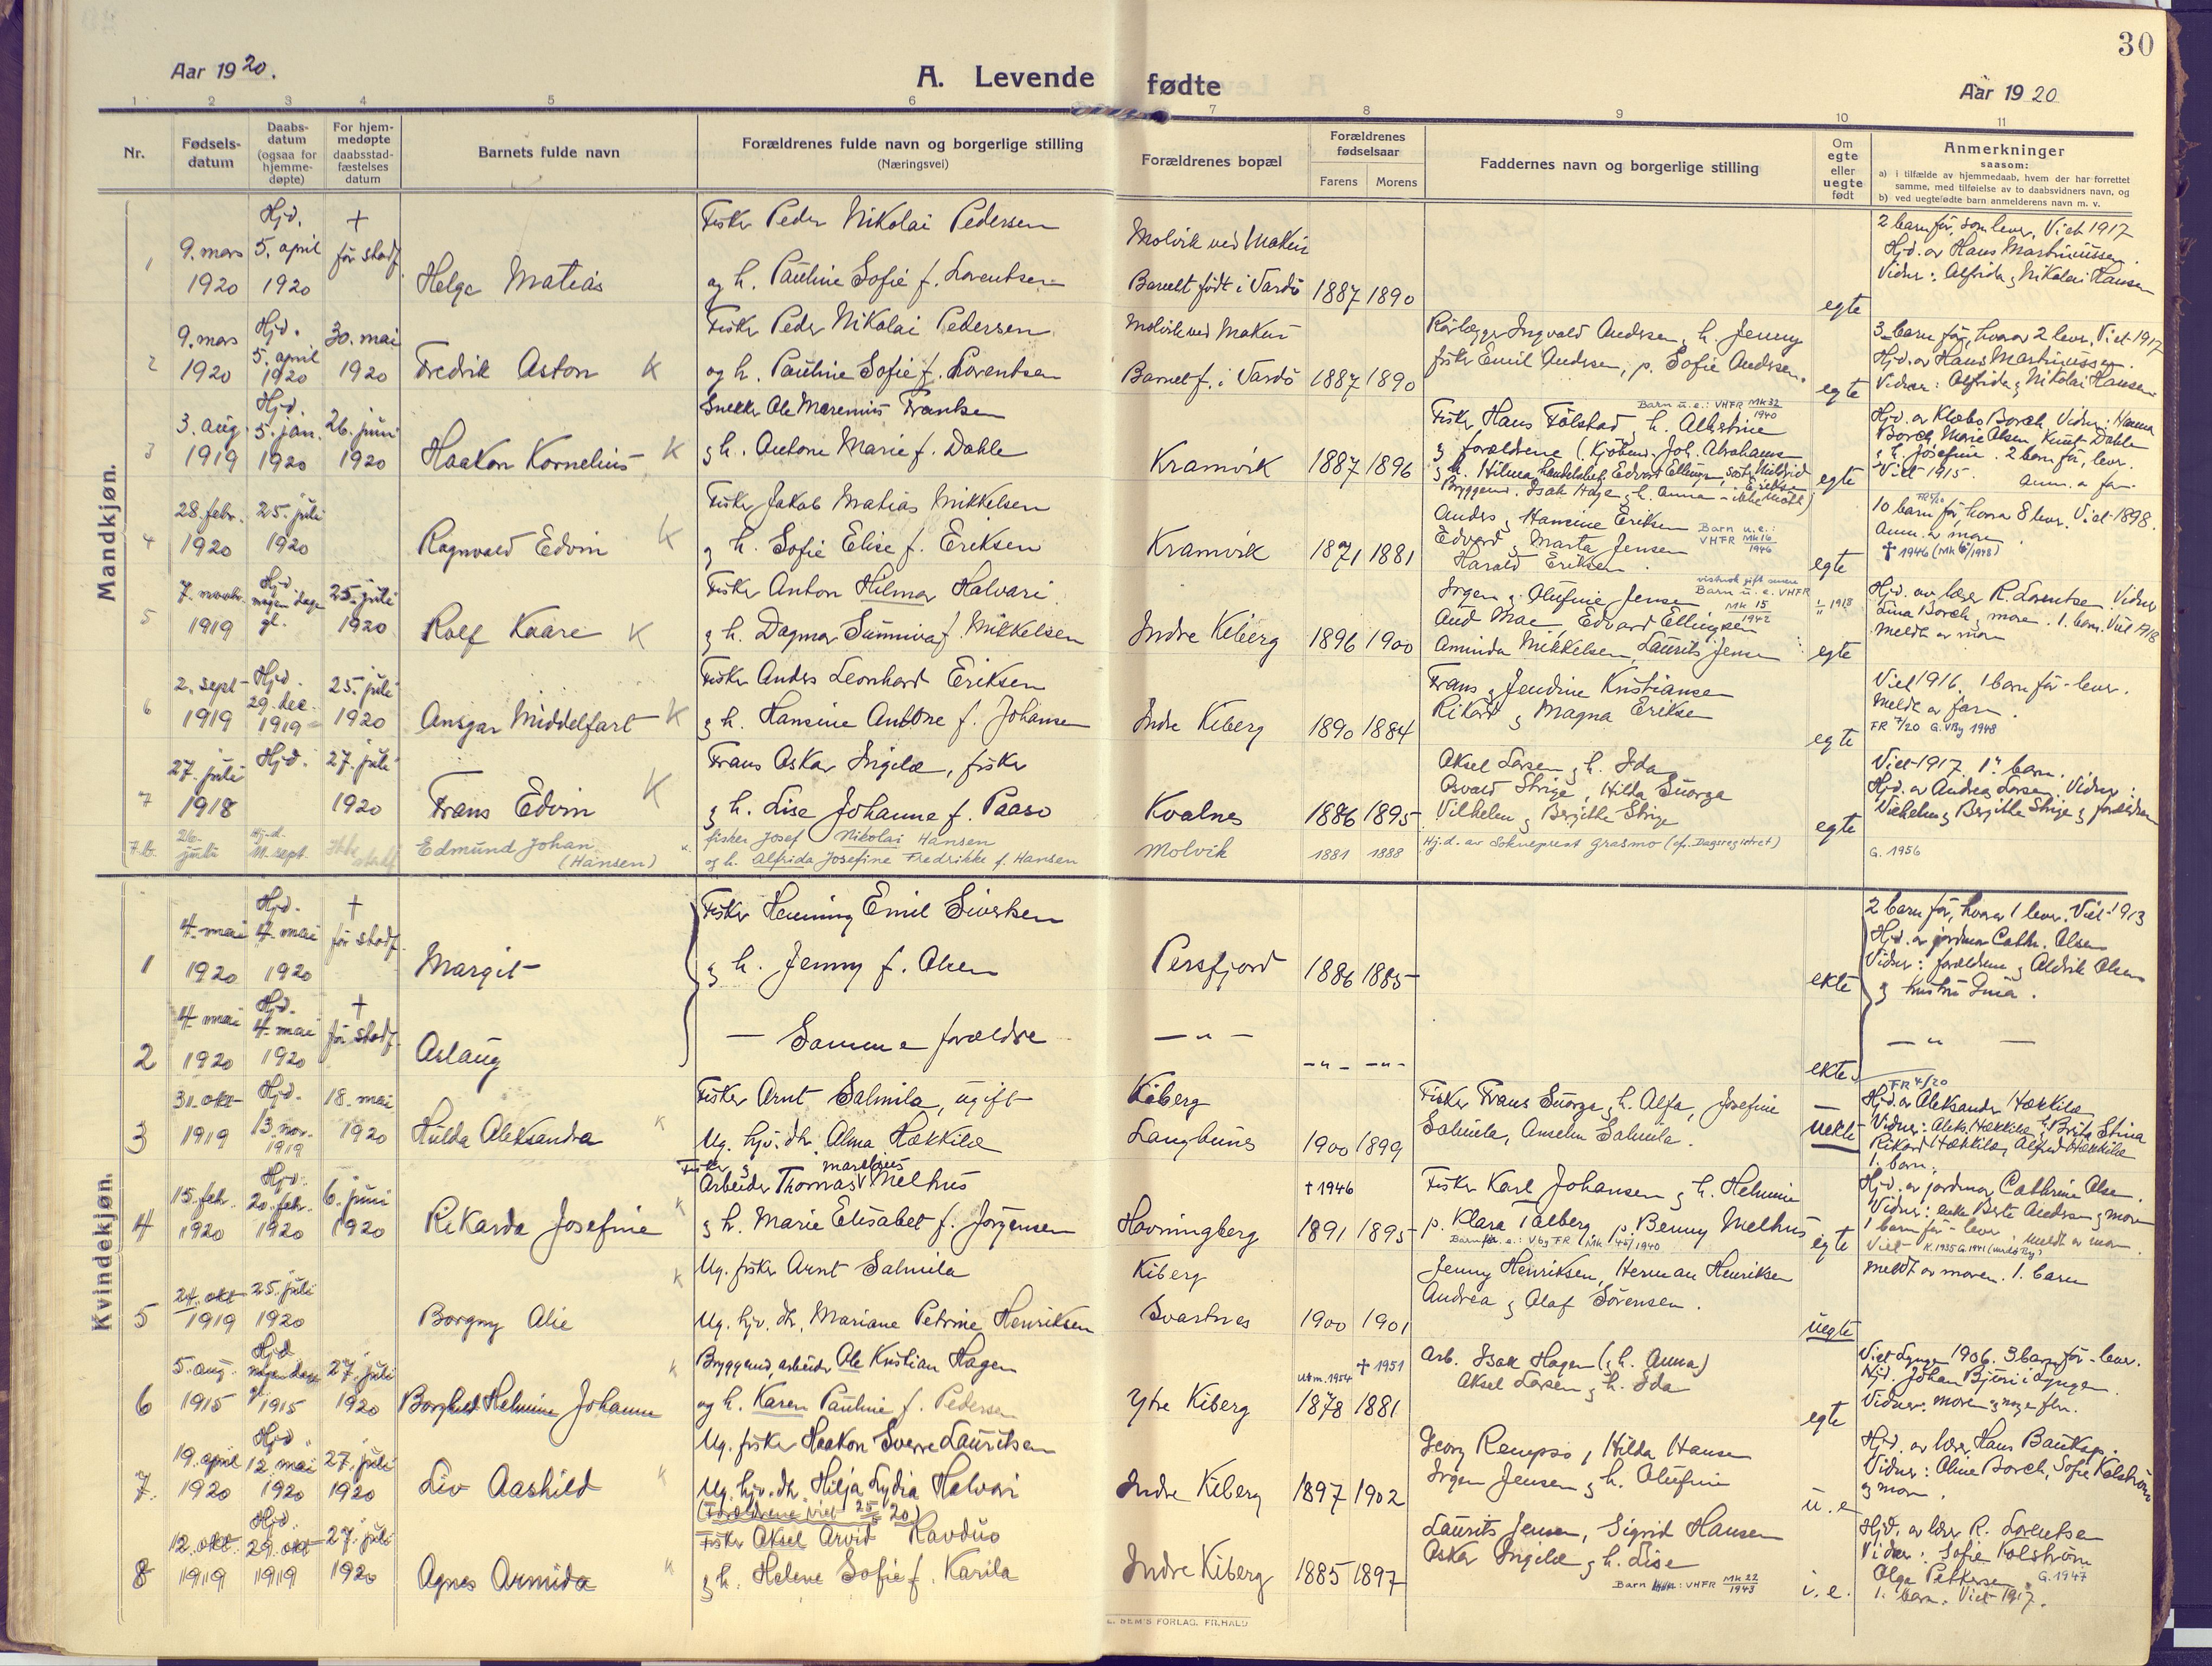 30
Aar 1920.
A. Levende fødte
Aar 1920
1 2 3 4 5 6 7 8 9 10 11
Nr.
Fødsels-
datum
Daabs-
datum
(ogsaa for
hjemme-
døpte)
For hjem-
medøpte
daabsstad-
fæstelses
datum
Barnets fulde navn
Forældrenes fulde navn og borgerlige stilling
(Næringsvei)
Forældrenes bopæl
Forældrenes
fødselsaar
Farens Morens
Faddernes navn og borgerlige stilling
Om
egte
eller
uegte
født
Anmerkninger
saasom:
a) i tilfælde av hjemmedaab, hvem der har forrettet
samme, med tilføielse av to daabsvidners navn, og
b) ved uegtefødte barn anmelderens navn m. v.
Mandkjøn.
1
9. mars
1920
Hjd.
5. april
1920
+
før stadf.
Helge Matias
Fisker Peder Nikolai Pedersen
og h. Pauline Sofie f. Lorentsen
Molvik ved Makur
Barnet født i Vardö
1887 1890
egte
2 barn før, som lever. Viet 1917
Hjd. av Hans Martinussen.
Vidner: Alfrida & Nikolai Hansen
2
9. mars
1920
Hjd.
5. april
1920
30. mai
1920
Fredrik Aston K
Fisker Peder Nikolai Pedersen
og h. Pauline Sofie f. Lorentsen
Molvik ved Makur
Barnet f. i Vardö
1887 1890
Ingvald Andersen & h. Jenny
fisker Emil Andersen, p. Sofie Andersen.
egte
3 barn før, hvorav 2 lever. Viet 1917
Hjd. av Hans Martinussen.
Vidner: Alfrida & Nikolai Hansen
3
3. aug.
1919
Hjd.
5. jan.
1920
26. juni
1920
Haakon Kornelius K
Snekker Ole Marenius Frantsen
& h. Antone Marie f. Dahle
Kramvik
1887 1896
Barn u. e.: VHFR Mk 32/1940
Fisker Hans Folstad & h. Albertine
& forældrene (Kjöbmd. Joh. Abrahamsen
& h. Hilma, Edvard Ellingsen,
Isak Hage & h. Anna - ikke
egte
Hjd. av Klebo Borch. Vidner: Hanna
Borch, Marie Olsen, Knut Dahle
& h. Josefine. 2 barn før, lever.
Viet 1915. Anm. av far.
4
28. febr.
1920
25. juli
1920
Ragnvald Edvin K
Fisker Jakob Matias Mikkelsen
& h. Sofie Elise f. Eriksen
Kramvik
1871 1881
Anders & Hansine Eriksen
Edvard & Marta Jensen
Harald Eriksen.
Barn u.e.:
VHFR Mk 16/1946
egte
10 barn før, hvorav 8 lever. Viet 1898.
Anm. av mor.
✝ 1946
5
7. novbr.
1919
Hjd.
nogen dage
gl.
25. juli
1920
Rolf Kaare K
Fisker Anton Hilmar Halvari
& h. Dagmar Sunniva f. Mikkelsen
Indre Kiberg
1896 1900
Jrgen & Olufine Jensen
Aud Mae, Edvard Ellingsen
Aminda Mikkelsen, Laurits Jensen
Barn u. e. VHFR
Mk 15/1942
egte
Hjd. av lærer R. Lorentsen. Vidner
Lina Borch & moren. 1. barn. Viet 1918
Meldt av mor
6
2. sept
1919
Hjd.
29. dec.
1919
25. juli
1920
Ansgar Middelfart K
Fisker Anders Leonhard Eriksen
& h. Hansine Antone f. Johansen
Indre Kiberg
1890 1884
Frans & Jendine Kristiansen
Rikard & Magna Eriksen
egte
Viet 1916. 1 barn før - lever.
Meldt av far.
FR 7/20 G. VBy 1948
7
27. juli
1918
Hjd.
27. juli
1920
Frans Edvin K
Frans Oskar Ingilæ, fisker
& h. Lise Johanne f. Paaso
Kvalnes
1886 1895
Aksel Larsen & h. Ida
Osvald Strige, Hilda Suorga
Vilhelm & Berjitte Strige
egte
Viet 1917. 1. barn.
Hjd. av Andreas Larsen. Vidner:
Vilhelm & Berjitte Strige & forældrene
7.b.
26.
juli
Hj.d.
11. sept.
Ikke
stadf.
Edmund Johan
(Hansen)
fisker Josef Nikolai Hansen
og h. Alfrida Josefine Fredrikke f. Hansen
Molvik
1881 1888
Hj.d. av Sokneprest Grasmo (cf. Dagsregistret)
G. 1956
Kvindekjøn.
1
4. mai
1920
Hjd.
4. mai
1920
+
før stadf.
Margit
Fisker Henning Emil Sivertsen
& h. Jenny f. Olsen
Persfjord
1886 1885
ekte
2 barn før, hvorav 1 lever. Viet 1913
Hjd. av jordmor Cath. Olsen
Vidner: forældrene & Aldrik Olsen
& hustru Lina.
2
4. mai
1920
Hjd.
4. mai
1920
+
før stadf.
Aslaug
— Samme forældre
— " —
-"- -"-
ekte
— " —
3
31. okt
1919
Hjd.
13. nov.
1919
18. mai
1920
Hulda Aleksandra K
Fisker Arnt Salmila, ugift
Ug. hjv. dtr. Alma Hækkilæ
Kiberg
Langbunes
1900 1899
Fisker Frans Suorga & h. Alfa, Josefine
Salmila, Anselm Salmila.
uekte
FR 4/20
Hjd. av Aleksander Hækkilæ
Vidner: Aleks. Hækkilæ, Brita Stina
Rikard Hækkilæ, Alfred Hækkilæ
1. barn.
4
15. febr.
1920
Hjd.
20. febr.
1920
6. juni
1920
Rikarda Josefine K
Fisker &
Arbeider Thomas Marelius Melhus
& h. Marie Elisabet f. Jørgensen
Havningberg
✝ 1946
1891 1895
Fisker Karl Johansen & h. Helmine
p. Klara Talberg, p. Benny Melhus
egte
Hjd. av jordmor Cathrine Olsen.
Vidner: enke Berte Andersen & mor
1 barn før - lever. Meldt av mor.
Viet
5
24. okt
1919
25. juli
1920
Borgny Alie K
Ug. fisker Arnt Salmila
Ug. hjv. dtr. Mariane Petrine Henriksen
Kiberg
Svartnes
1900 1901
Jenny Henriksen, Herman Henriksen
Andrea & Olaf Sørensen.
uegte
Meldt av moren. 1. barn
6
5. aug.
1915
Hjd
nogen dage
gl. 1915
27. juli
1920
Borghild Helmine Johanne K
Byggmd, arbeider Ole Kristian Hagen
og h. Karen Pauline f. Pedersen
Ytre Kiberg
utm. 1954 ✝ 1951
1878 1881
Arb. Isak Hagen (& h. Anna)
Aksel Larsen & h. Ida
egte
Viet Lyngen 1906. 3 barn før - lever.
Hjd. Johan Björu i Lyngen.
Vidner: moren & noge fler.
7.
19. april
1920
Hjd.
12. mai
1920
27. juli
1920
Liv Aashild K
Ug. fisker Haakon Sverre Lauritsen
Ug. hjv. dtr. Hilja Lydia Halvari
(Forældrene viet 25/5 20)
Indre Kiberg
1897 1902
Georg Rempso, Hilda Hansen
Jrgen Jensen & h. Olufine
u. e
Hjd. av lærer Hans Bauksp.
Vidner: Oline Borch, Sofie Kolström
& mor.
8
12. okt.
1919
Hjd.
29. okt
1919
27. juli
1920
Agnes Armida K
Fisker Aksel Arvid Ravduo
& h. Helene Sofie f. Karila
Indre Kiberg
1885 1897
Laurits Jensen, Sigrid Hansen
Oskar Ingilæ & h. Lise
Barn : VHFR Mk 22/1943
i. e.
Hjd. av lærer R. Lorentsen
Vidner: Sofie Kolström
Olga Pettersen. G. 1947
1. barn. Viet 1917.
E. SEM'S FORLAG. FR.HALD